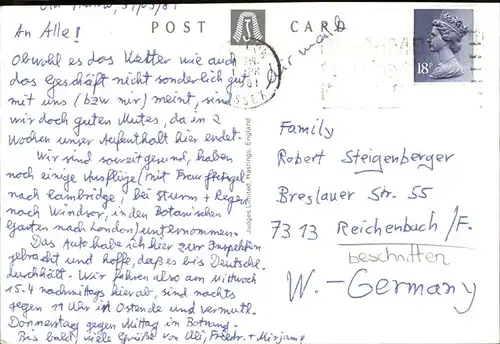 31/03/81
POST CARD
An Alle!
Air mail
18P
Obwohl es das Wetter wie auch
das Geschäft nicht sonderlich gut
mit uns (bzw mir) meint, sind
wir doch guten Mutes, da in 2
Wochen unser Aufenthalt hier endet.
Wir sind soweit gesund, haben
noch einige Ausflüge (mit Frau
nach Cambridge, bei Sturm + Regen
nach Windsor, in den Botanischen
Garten nach London) unternommen.
Das Auto habe ich hier zur Inspektion
gebracht und hoffe, daß es bis Deutschl.
durchhält. Wir fahren also am Mittwoch
15.4 nachmittags hier ab, sind nachts
gegen 11 Uhr in Ostende und vermutl.
Donnerstag gegen Mittag in Botnang.
Bis bald, viele Grüße von Uli, Friedr. + Mirjam
Judges Limited, Hastings, England
Family
Robert Steigenberger
Breslauer Str. 55
7313 Reichenbach /F.
beschnitten
W.-Germany